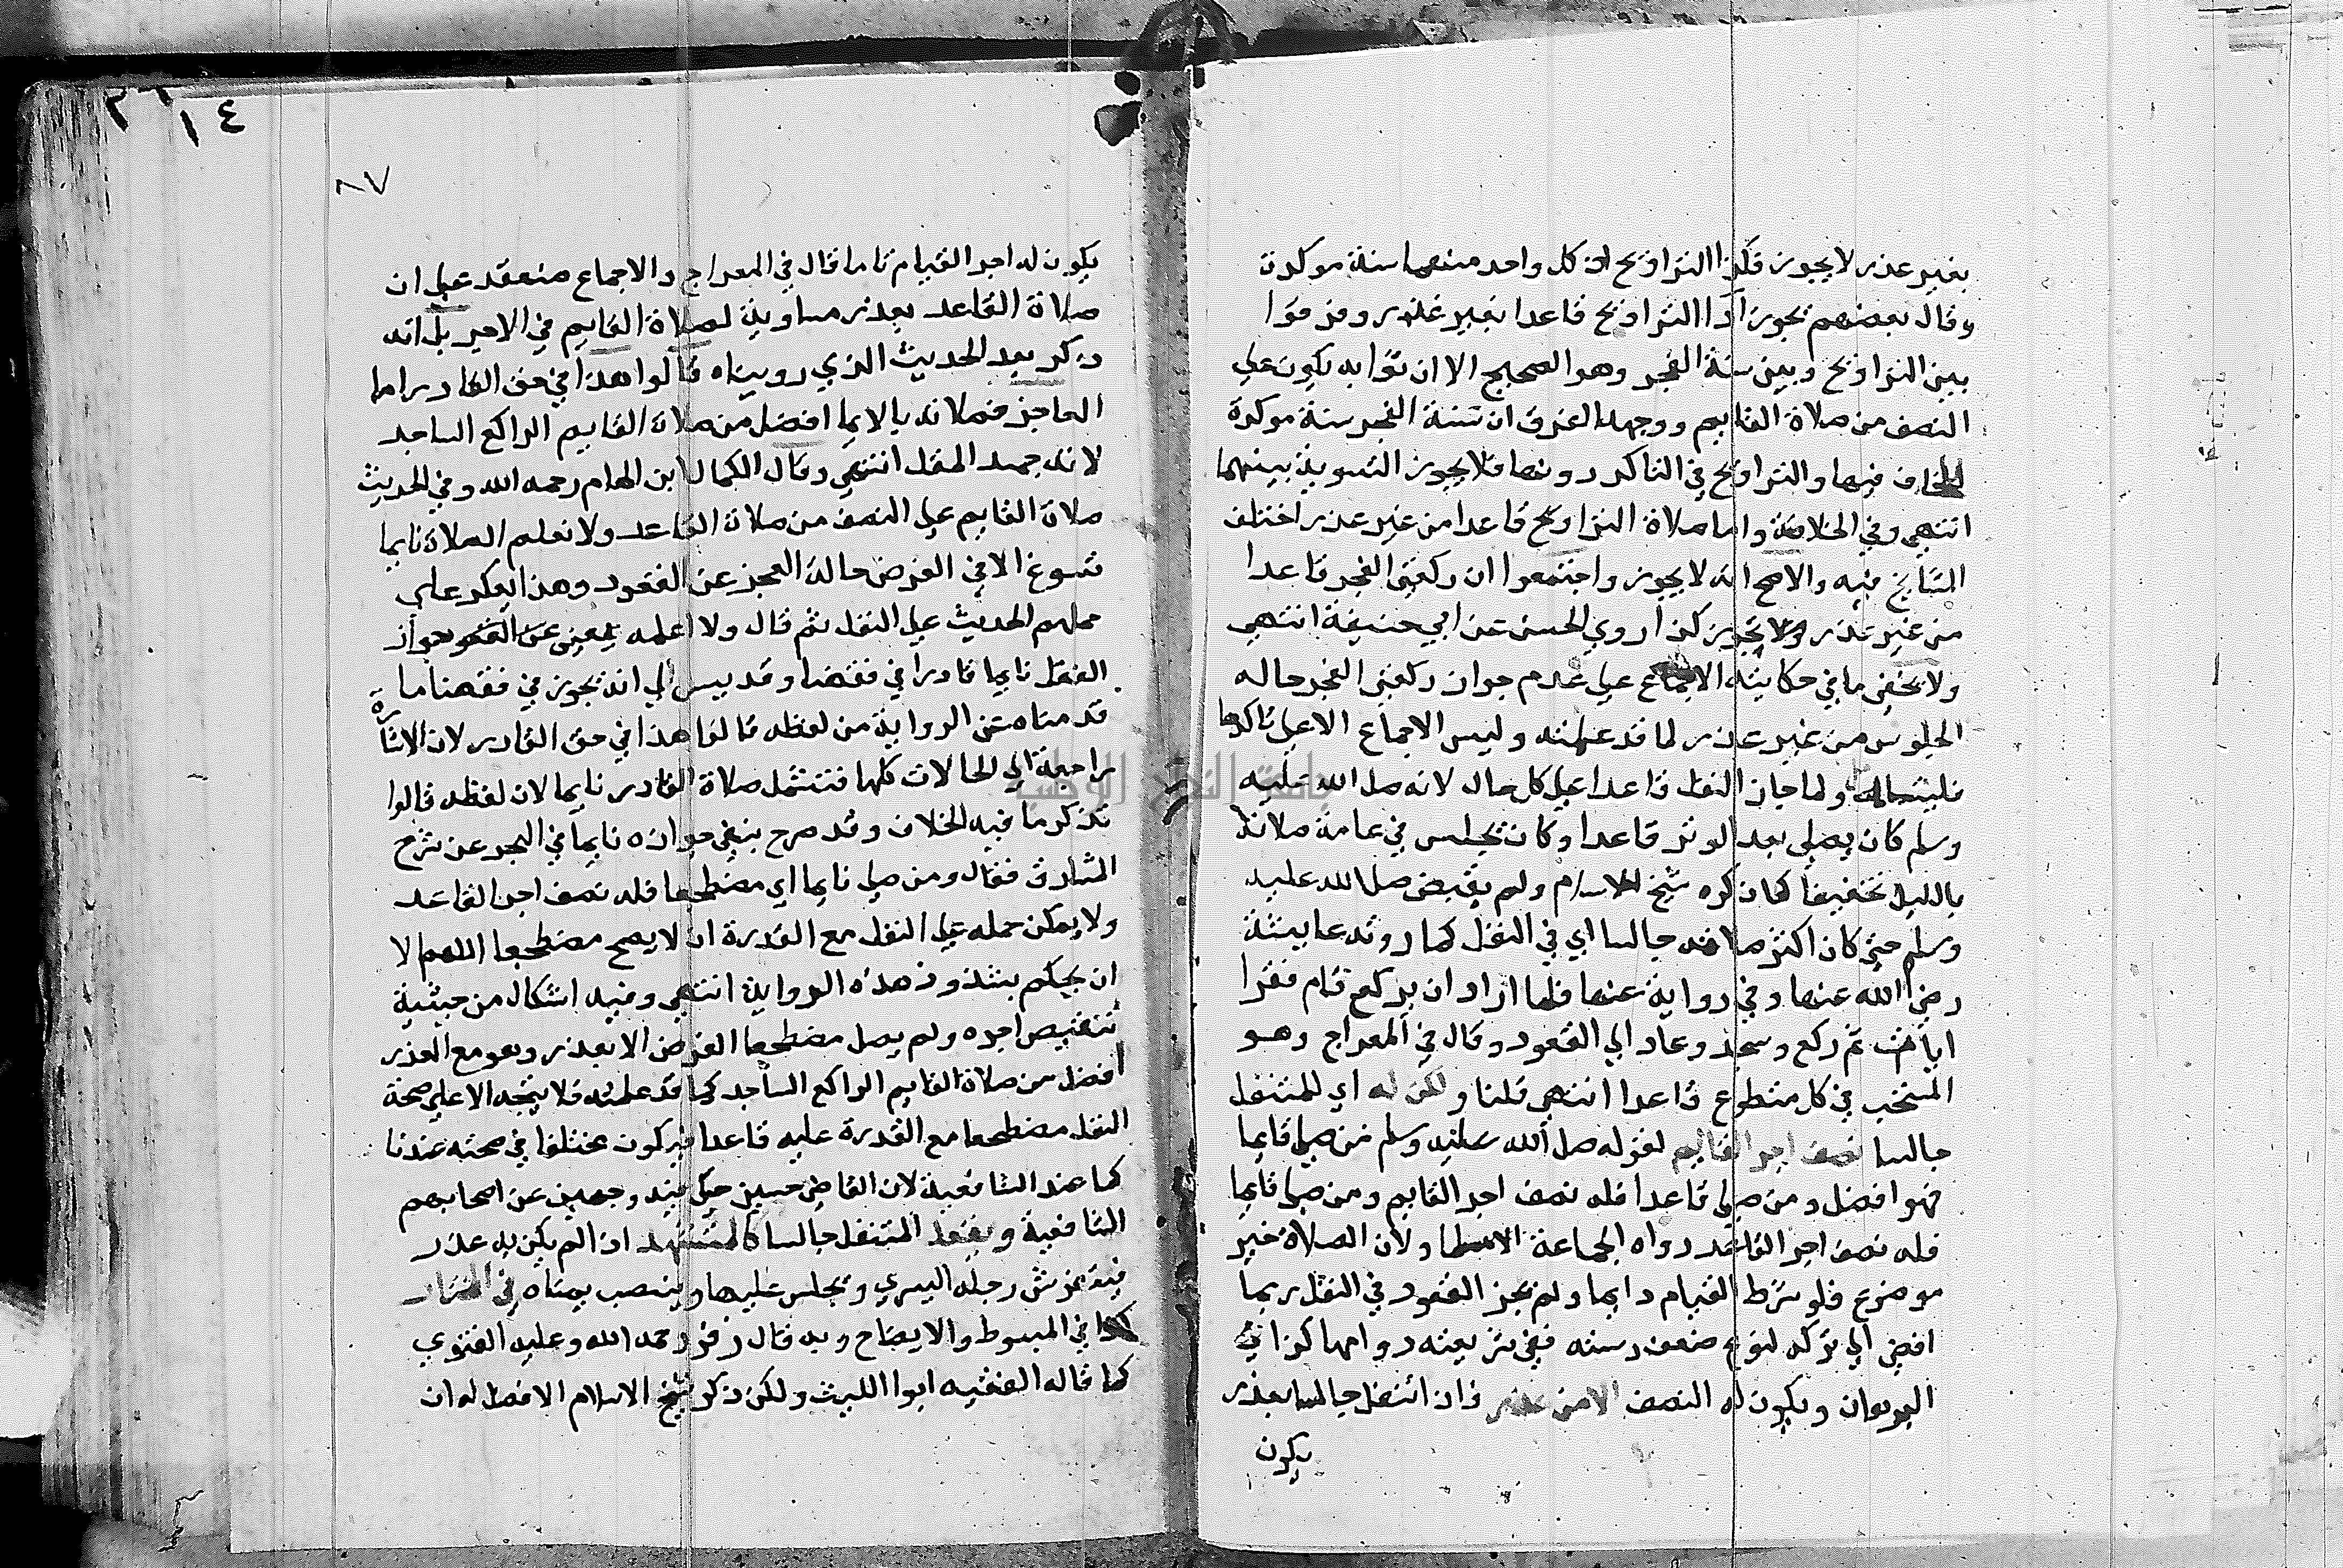 بغير عذر لا يجوز فكذا التراويح اذ كل واحد منهما سنة موكدة
وقال بعضهم يجوز ادا التراويح قاعدا بغير عذر وفرقوا
بين التراويح وبين سنة الفجر وهو الصحيح الا ان ثوابه يكون على
النصف من صلاة القايم ووجه الفرق ان سنة الفجر سنة موكدة
لا خلاف فيها والتراويح في التاكد دونها فلا يجوز التسوية بينهما
انتهى وفي الخلاصة واما صلاة التراويح قاعدا من غير عذر اختلف
المشايخ فيه والاصح انه لا يجوز واجتمعوا ان ركعتي الفجر قاعدا
من غير عذر لا يجوز كذا روي الحسن عن ابي حنيفة انتهى
ولا يخفى ما في حكايته الاجماع على عدم جواز ركعتي الفجر حاله
الجلوس من غير عذر لما قد علمته وليس الاجماع الا على تاكدها
فليتنبه له ولما جاز النفل قاعدا على كل حال لانه صلى الله عليه
وسلم كان يصلي بعد الوتر قاعدا وكان يجلس في عامة صلاته
بالليل تخفيفا كما ذكره شيخ الاسلام ولم يقبض صلى الله عليه
وسلم حتى كان اكثر صلاته جالسا اي في النفل كما روته عايشة
رضي الله عنها وفي رواية عنها فلما اراد ان يركع قام فقرا
ايات ثم ركع وسجد وعاد الي القعود وقال في المعراج وهو
المستحب في كل متطوع قاعدا انتهى قلنا ولكن له اي للمتنفل
جالسا نصف اجر القايم لقوله صلى الله عليه وسلم من صلى قايما
فهو افضل ومن صلى قاعدا فله نصف اجر القايم ومن صلى نايما
فله نصف اجر القاعد رواه الجماعة الا مسلما ولان الصلاة خير
موضوع فلو شرط القيام دايما ولم يجز القعود في النفل ربما
افضى الي تركه لنوع ضعف وسنه ففي شريعته دوامها كذا في
البرهان ويكون له النصف الا من عذر فان اتنفل جالسا بعذر
يكون
٨٧
يكون له اجر القيام تاما قال في المعراج والاجماع منعقد على ان
صلاة القاعد بعذر مساوية لصلاة القايم في الاجر بل انه
ذكر بعد الحديث الذي رويناه قالوا هذا في حق القادر اما
العاجز فصلاته بالايما افضل من صلاة القايم الراكع الساجد
لانه جهد المقل انتهى وقال الكمال ابن الهمام رحمه الله وفي الحديث
صلاة القايم على النصف من صلاة القاعد ولا نعلم الصلاة نايما
تسوغ الا في الفرض حالة العجز عن القعود وهذا يعكر على
حملهم الحديث على النفل ثم قال ولا اعلمه يعني جواز
النفل نايما قادرا في فقهنا وقد بيس لي انه يجوز في فقهنا ما
قدمناه عن الرواية من لفظه قالوا هذا في حق القادر لان الاشارة
راجعة الي الحالات كلها فتشمل صلاة القادر نايما لان لفظه قالوا
تذكر ما فيه الخلاف وقد صرح بنفي جوازه نايما في البحر عن شرح
المشارق فقال ومن صلى نايما اي مضطجعا فله نصف اجر القاعد
ولا يمكن حمله على النفل مع القدرة اذ لا يصح مضطجعا اللهم الا
ان يحكم بشذوذ هذه الرواية انتهى وفيه اشكال من حيثية
تنقيص اجره ولم يصل مضطجعا الفرض الا بعذر وهو مع العذر
افضل من صلاة القايم الراكع الساجد كما قد علمته فلا يتجه الا على صحة
النفل مضطجعا مع القدرة عليه قاعدا فيكون مختلفا في صحته عندنا
كما عند الشافعية لان القاضي حسين حكى فيه وجهين عن اصحابهم
الشافعية ويقعد المتنفل جالسا كالمتشهد اذا لم يكن به عذر
فيفترش رجله اليسري ويجلس عليها وينصب يمناه في المختار
كذا في المبسوط والايضاح وبه قال زفر رحمه الله وعليه الفتوي
كما قاله الفقيه ابوا الليث ولكن ذكر شيخ الاسلام الافضل له ان